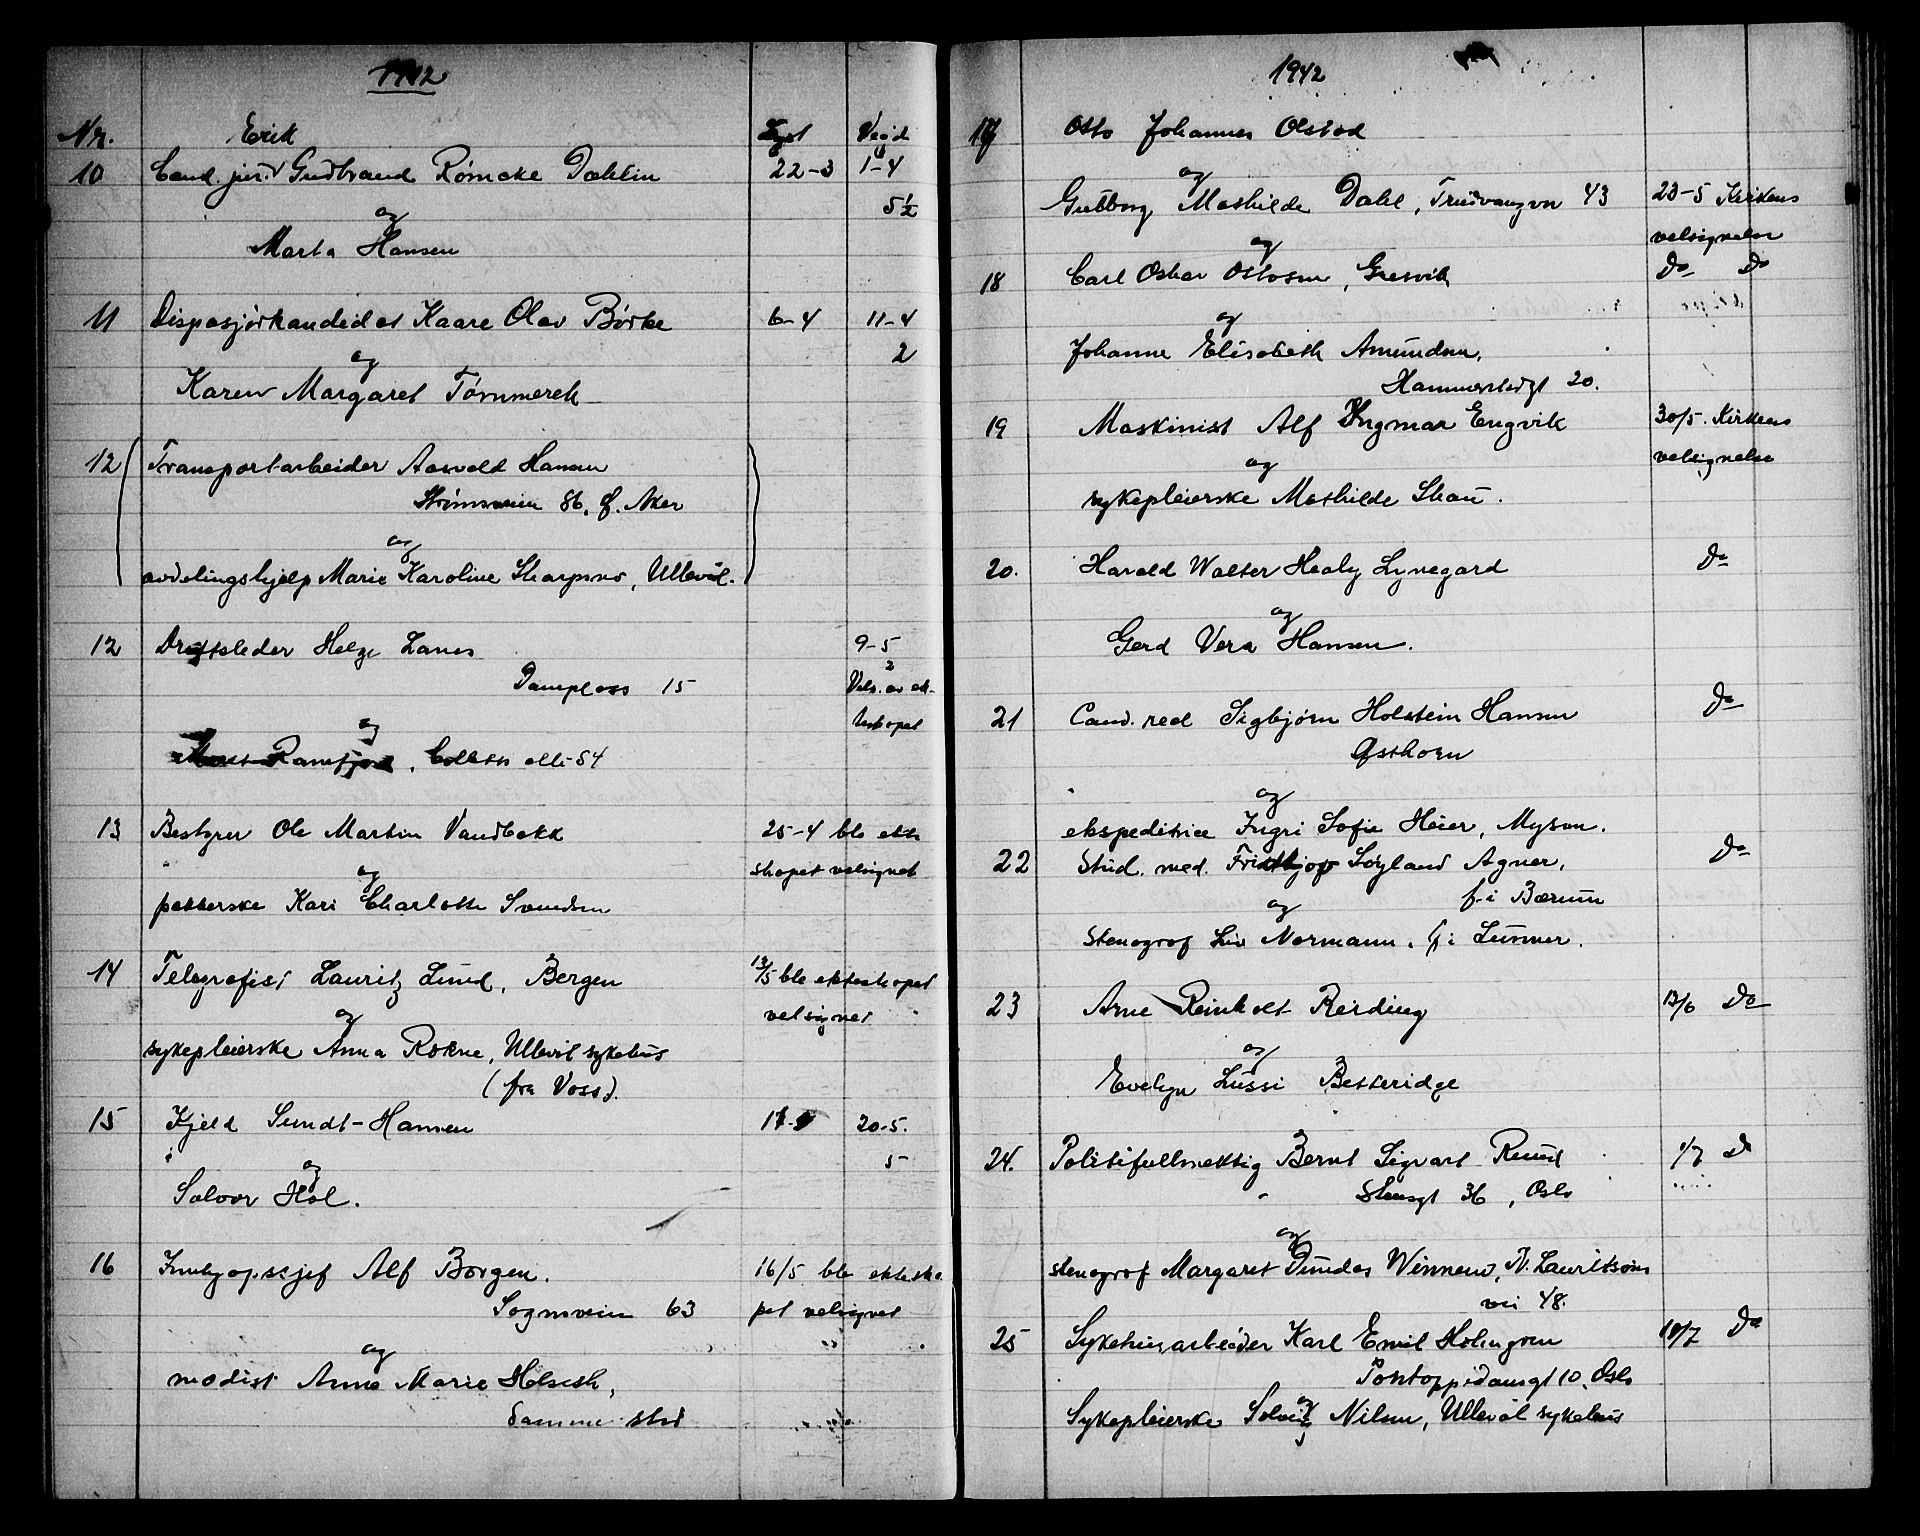 1942
Nr. Erik Lyst Vigd
10 Cand. jur. Gudbrand Rømcke Dæhlin 22-3 1-4
og 5½
Marta Hansen
11 Kaare Olav Børke 6-4 11-4
og 2
Karen Margaret Tømmerek
12 Transportarbeider Aasvald Hansen
Strømsveien 86, Ø. Aker
og
avdelingshjelp Marie Karoline Skarpnes, Ullevål.
12 Driftsleder Helge Lanes 9-5
15 Vels. av ek-
og teskapet
54
13 Bestyrer Ole Martin Vandbakk 25-4 ble ekte
og skapet velsignet
pakkerske Kari Charlotte Svendsen
14 Telegrafist Lauritz Lund, Bergen 13/5 ble ekteskapet
og velsignet
sykepleierske Anna Rokne, Ullevål sykehus
(fra Voss).
15 Kjeld Sundt-Hansen 20-5.
og 5
Solvor Hol.
16 Innkjøpssjef Alf Borgen. 16/5 ble ekteska
Sognsveien 63 pet velsignet
og
modist Anne Marie Holseth,
Samme sted
1942
17 Otto Johannes Olstad
og
Gudborg Mathilde Dahl, Trudvangvn 43 23-5 Kirkens
og velsignelse
18 Carl Oskar Ostosen, Gresvik Do Do
og
Johanne Elisabeth Amundsen,
Hammerstadgt 20.
19 Maskinist Alf Ingmar Engvik 30/5. Kirkens
og velsignelse
sykepleierske Mathilde Skau.
20. Harald Walter Healy Lynegard Do
og
Gerd Vera Hansen.
21 Cand. real Sigbjørn Holstein Hansen Do
Østhorn
og
ekspeditrice Ingri Sofie Heier, Mysen.
22 Stud. med. Fridtjof Søyland Agner, Do
og f. i Bærum
Stenograf Liv Normann, f. i Lunner.
23 Arne Reinholt Reiding 13/6 Do
og
Evelyn Lussi Betteridge
24. Politifullmektig Bernt Sigvart Ruud 1/7 Do
Stensgt 36, Oslo
og
stenograf Margaret Dundas Winnem, N. Lauritzsøns
vei 48.
25 Sykehusarbeider Karl Emil Holmgren 10/7 Do
Pontoppidansgt 10, Oslo
og
Sykepleierske Solveig Nilsen, Ullevål sykehus